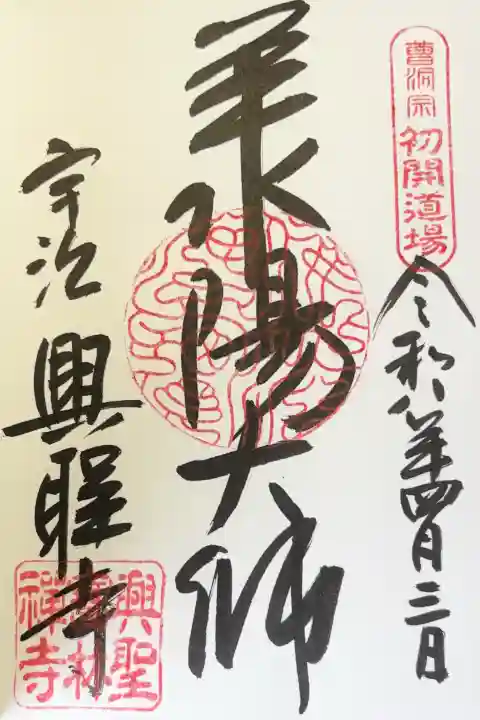 曹洞宗 初開道場
令和八年四月三日
承陽大師
宇治 興聖寺
興聖
寶林
禅寺